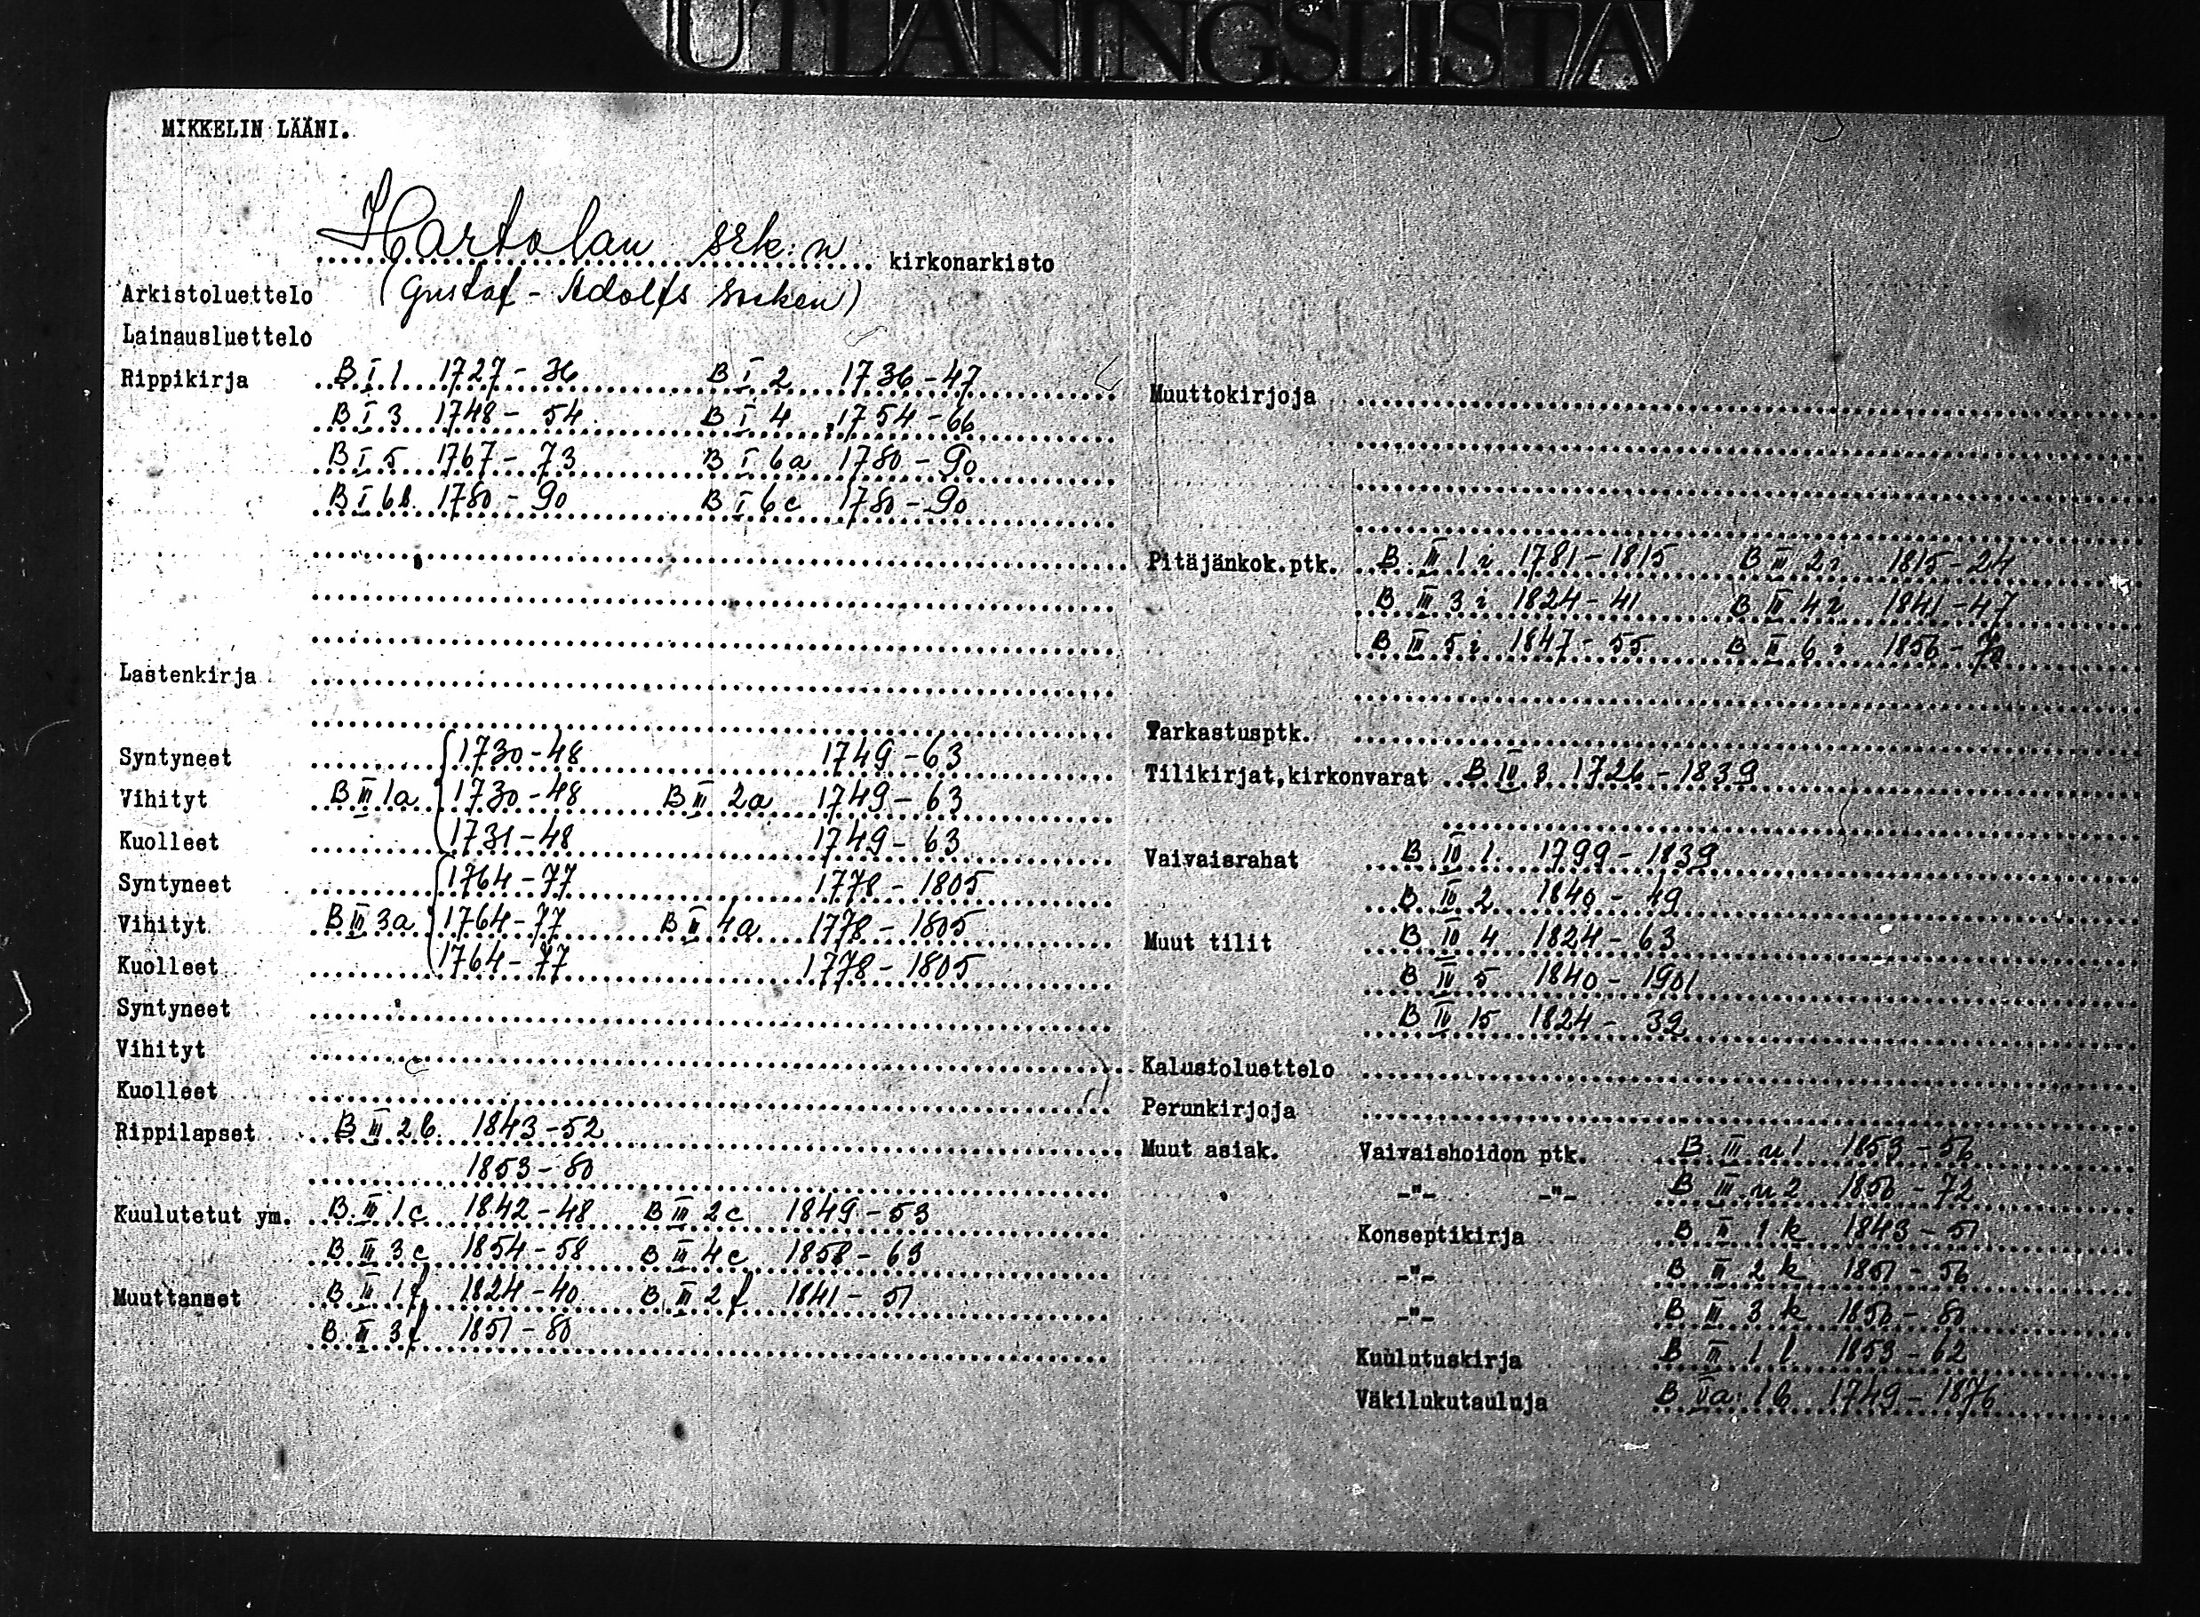 UTLÅNINGSLISTA
MIKKELIN LÄÄNI.
Hartolan srk:n kirkonarkisto
Arkistoluettelo (Gustaf-Adolfs socken)
Lainausluettelo
Rippikirja B I 1 1727-36 B I 2 1736-47
B I 3 1748-54 B I 4 1754-66
B I 5 1767-73 B I 6a 1780-90
B I 6b 1780-90 B I 6c 1780-90
Lastenkirja
Syntyneet 1730-48 1749-63
Vihityt B III 1a 1730-48 B III 2a 1749-63
Kuolleet 1731-48 1749-63
Syntyneet 1764-77 1778-1805
Vihityt B III 3a 1764-77 B III 4a 1778-1805
Kuolleet 1764-77 1778-1805
Syntyneet
Vihityt
Kuolleet
Rippilapset B III 2b 1843-52
1853-80
Kuulutetut ym. B III 1c 1842-48 B III 2c 1849-53
B III 3c 1854-58 B III 4c 1858-63
Muuttaneet B III 1f 1824-40 B III 2f 1841-51
B III 3f 1851-80
Muuttokirjoja
Pitäjänkok.ptk. B III 1i 1781-1815 B III 2i 1815-24
B III 3i 1824-41 B III 4i 1841-47
B III 5i 1847-55 B III 6i 1856-72
Tarkastusptk.
Tilikirjat,kirkonvarat B IV 3 1726-1839
Vaivaisrahat B IV 1 1799-1839
B IV 2 1840-49
Muut tilit B IV 4 1824-63
B IV 5 1840-1901
B IV 15 1824-39
Kalustoluettelo
Perunkirjoja
Muut asiak. Vaivaishoidon ptk. B III n1 1853-56
-"- -"- B III n2 1856-72
Konseptikirja B III 1k 1843-51
-"- B III 2k 1851-56
-"- B III 3k 1856-80
Kuulutuskirja B III 1l 1853-62
Väkilukutauluja B Va 1b 1749-1876